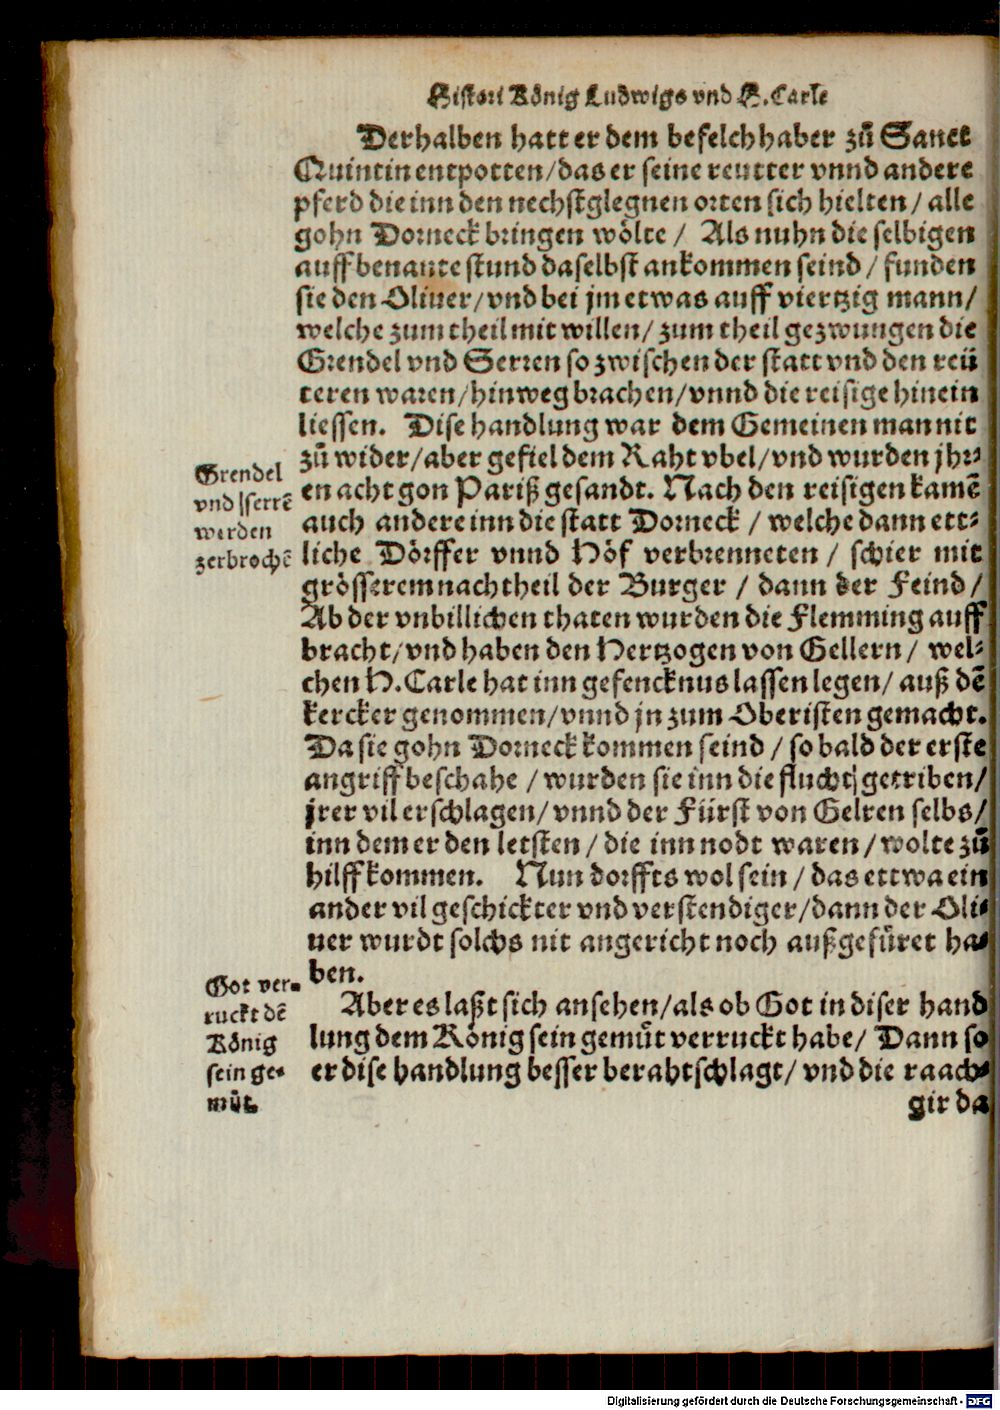 Histori König Ludwigs vnd H. Carle
Derhalben hatt er dem befelchhaber zů Sanct
Quintin entpotten/das er seine reutter vnnd andere
pferd die inn den nechstglegnen orten sich hielten/ alle
gohn Dorneck bringen wölte / Als nuhn die selbigen
auff benante stund daselbst ankommen seind / funden
sie den Oliuer/vnd bei jm etwas auff viertzig mann/
welche zum theil mit willen/ zum theil gezwungen die
Grendel vnd Serren so zwischen der statt vnd den reü
teren waren/hinweg brachen/vnnd die reisige hinein
liessen. Dise handlung war dem Gemeinen man nit
zů wider/aber gefiel dem Raht vbel/vnd wurden jhr⸗
en acht gon Pariß gesandt. Nach den reisigen kamē
auch andere inn die statt Dorneck / welche dann ett⸗
liche Dörffer vnnd Höf verbrenneten / schier mit
grösserem nachtheil der Burger / dann der Feind /
Ab der vnbillichen thaten wurden die Flemming auff
bracht/vnd haben den Hertzogen von Gellern / wel⸗
chen H. Carle hat inn gefencknus lassen legen/ auß dē
kercker genommen/vnnd jn zum Oberisten gemacht.
Da sie gohn Dorneck kommen seind / so bald der erste
angriff beschahe / wurden sie inn die flucht getriben/
jrer vil erschlagen/ vnnd der Fürst von Gelren selbs/
inn dem er den letsten / die inn nodt waren / wolte zů
hilff kommen. Nun dorffts wol sein / das ettwa ein
ander vil geschickter vnd verstendiger/dann der Oli⸗
uer wurdt solchs nit angericht noch außgefůret ha⸗
ben.
Aber es laßt sich ansehen/als ob Got in diser hand
lung dem König sein gemůt verruckt habe/ Dann so
er dise handlung besser berahtschlagt/ vnd die raach⸗
gir da
Grendel
vnd sserrē
werden
zerbrochē
Got ver⸗
ruckt dē
König
sein ge⸗
můt.
Digitalisierung gefördert durch die Deutsche Forschungsgemeinschaft - DFG